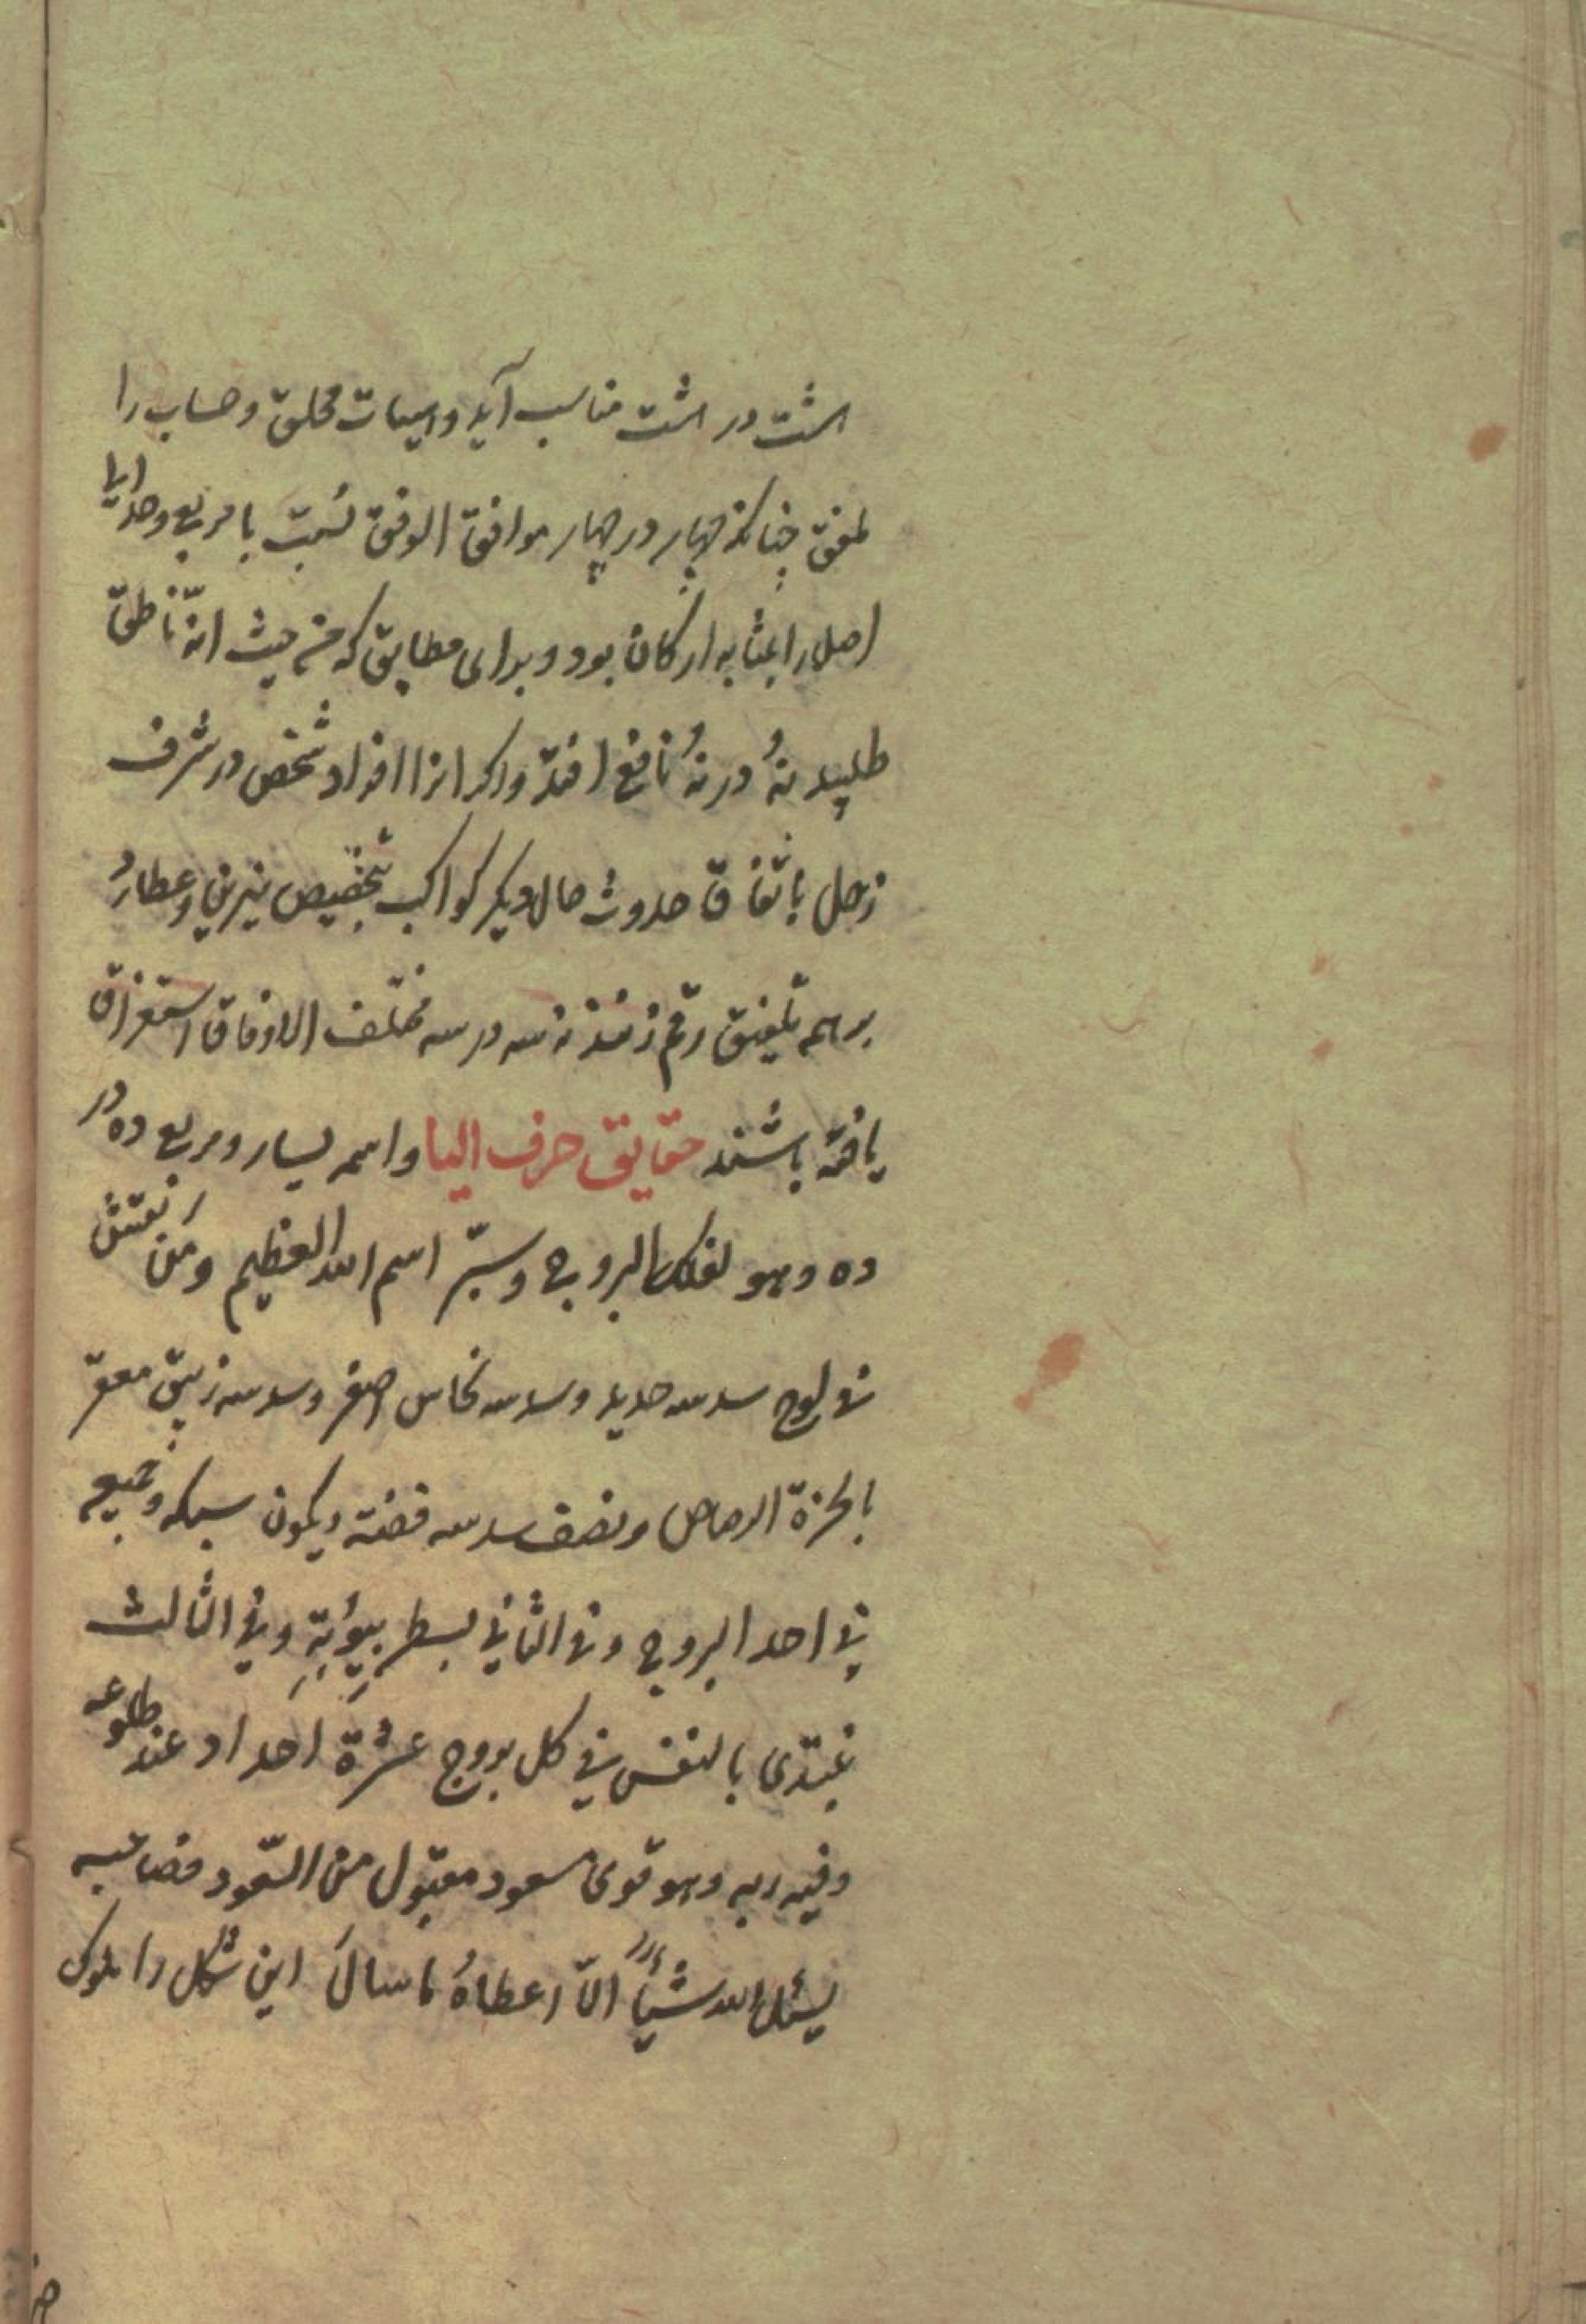 اشت در اشت مناسب آید و محلق و حساب را
لمفق چنانکه چهار در چهار موافق الوفق نسبت با مربع
اصل را بمثابه ارکان بود و برای مطابق که من حیث انّه ناطق
طلپید نهُ در نهُ نافع افتد و اکر انرا افراد شخص در شرف
زحل باتفاق حدوث حال دیکر کواکب بتخصیص نیرین و عطارد
بر سم تلیفق رقم زنند نه سه در سه مختلف الاوفاق استغراق
یافته باشند حقایق حرف الیا و اسم یسار و مربع ده در
ده وهو لفلک البروج وسرّ اسم الله العظیم ومَن نقش
فی لوح سدسه حدید وسدسه نحاس اصفر وسدسه زیبق معقر
الرصاص ونصف سدسه فضّة ویکون سبکه وجمیعه
فی احد البروج وفی الثانی بسطر وفی الثالث
یبتدی بالنقش فی کل بروج عشرة اعداد عند طلوعه
وفیه ربه وهو قوی مسعود مقبول من السّعود فصاحبه
یسئل الله شیأً الّا اعطاهُ ما سالَ این شکل را ملوک